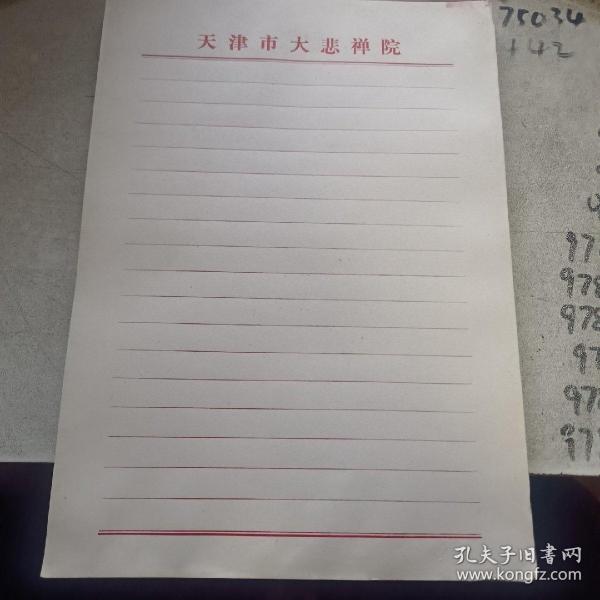 天津市大悲禅院
75034
142
978
978
孔夫子旧书网
www.kongfz.com